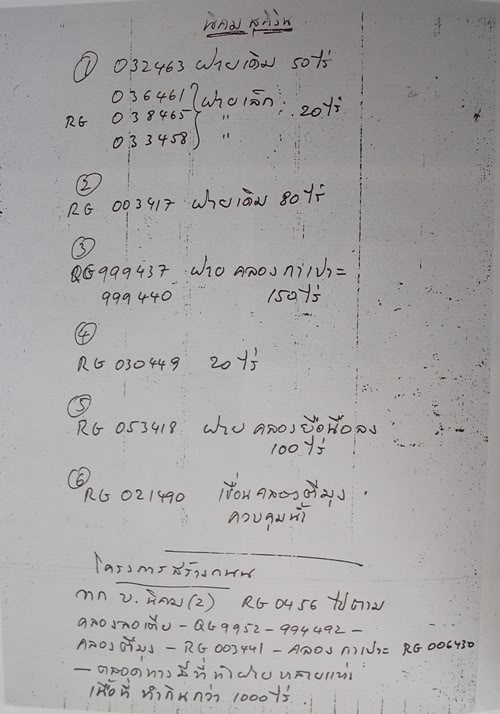 นิคม สุคิริน
① 032463 ฝายเดิม 50 ไร่
036461 } ฝายเล็ก : 20 ไร่
RG 038465 "
033458 "
②
RG 003417 ฝายเดิม 80 ไร่
③
QG 999437 ฝาย คลอง กาเปาะ
999440 150 ไร่
④
RG 030449 20 ไร่
⑤
RG 053418 ฝาย คลองยือนือลง
100 ไร่
⑥
RG 021490 เขื่อนคลองตีมุง
ควบคุมน้ำ
โครงการสร้างถนน
จาก บ. นิคม (2) RG 0456 ไปตาม
คลองลอเตีย - QG 9952 - 994492 -
คลองตีมุง - RG 003441 - คลอง กาเปาะ RG 006430
- ตลอดทางมีที่ทำฝายหลายแห่ง
เนื้อที่ทำกินกว่า 1000 ไร่